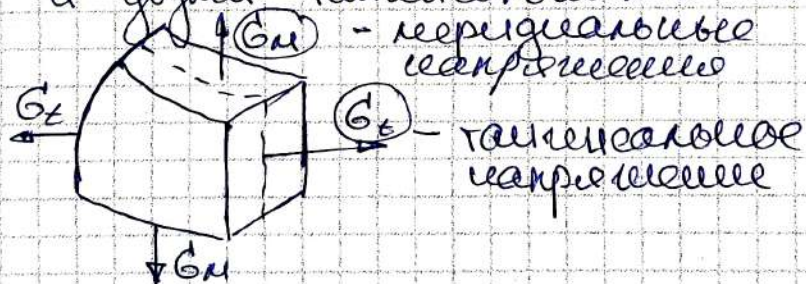 σм - меридиальные
напряжения
σt
σt - тангенсальное
напряжение
σм